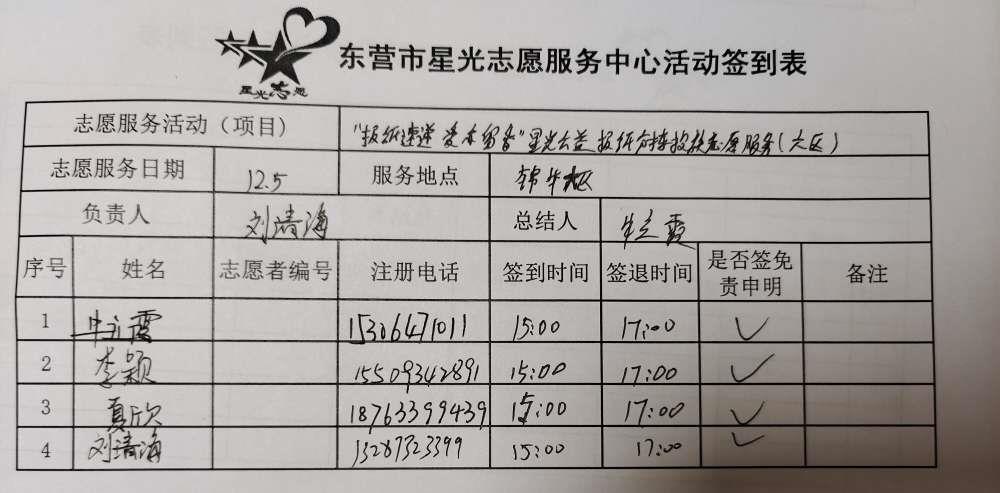 星光志愿
东营市星光志愿服务中心活动签到表
志愿服务活动（项目） "报纸速递 爱心留香"星光公益报纸分拣投放志愿服务(大区)
志愿服务日期 12.5 服务地点 锦华
负责人 刘清海 总结人 牛立霞
序号 姓名 志愿者编号 注册电话 签到时间 签退时间 是否签免责申明 备注
1 牛立霞 15306471011 15:00 17:00 ✓
2 李颖 15509342891 15:00 17:00 ✓
3 夏欣 18763399439 15:00 17:00 ✓
4 刘清海 13287323399 15:00 17:00 ✓